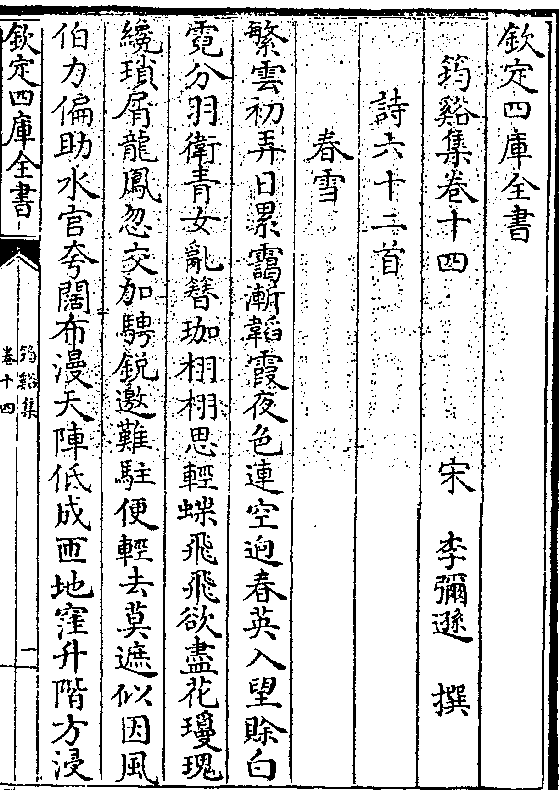 欽定四庫全書
筠谿集卷十四
宋　李彌遜　撰
詩六十二首
春雪
繁雲初弄日累靄漸韜霞夜色連空迥春英入望賒白
霓分羽衛青女亂簪珈栩栩思輕蝶飛飛欲盡花瓊瑰
繞瑣屑龍鳳忽交加騁銳邀難駐便輕去莫遮似因風
伯力偏助水官夸闊布漫天陣低成匝地窪升階方浸
欽定四庫全書
筠谿集
卷十四
一